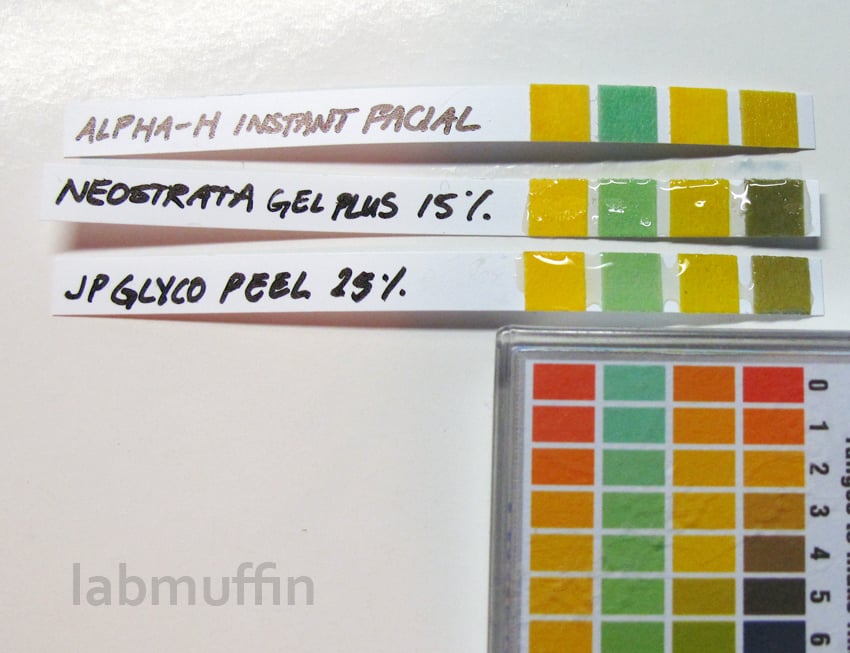 ALPHA-H INSTANT FACIAL
NEOSTRATA GEL PLUS 15%
JP GLYCO PEEL 25%
0
1
2
3
4
5
6
labmuffin